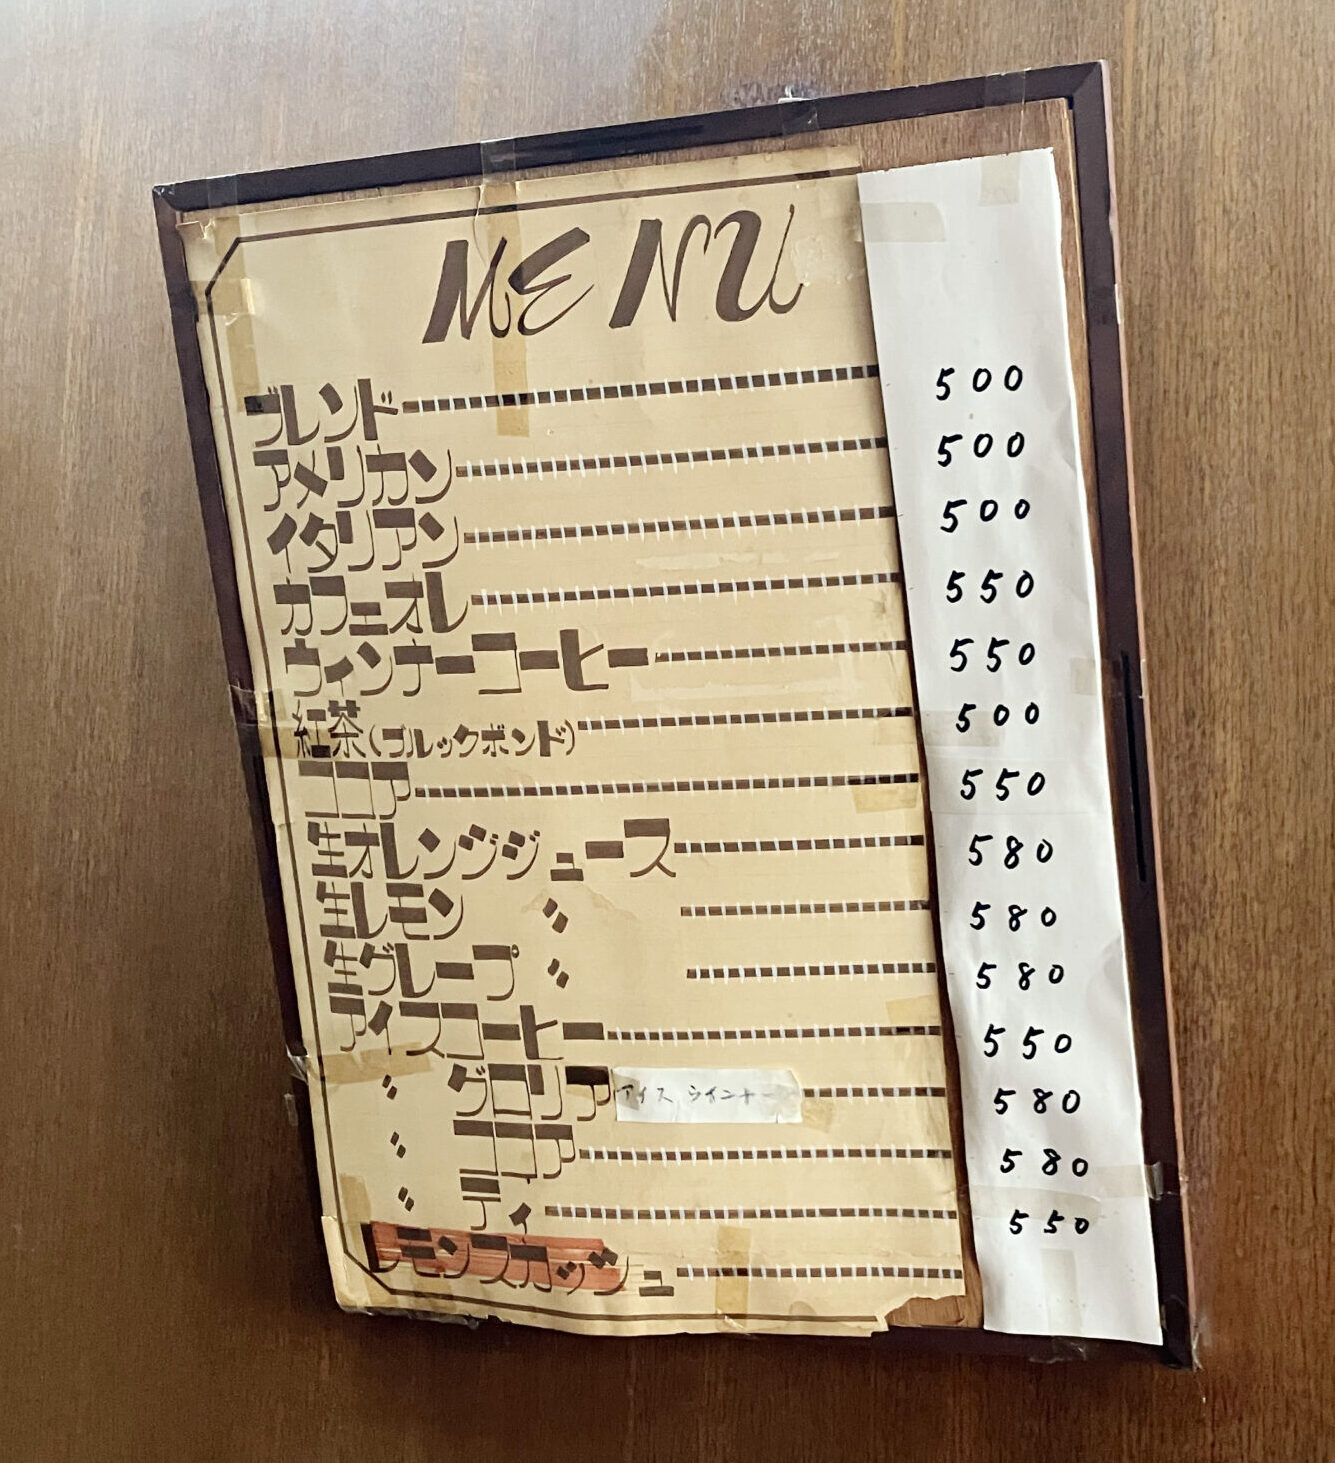 MENU
ブレンド 500
アメリカン 500
イタリアン 500
カフェオレ 550
ウィンナーコーヒー 550
紅茶(ブルックボンド) 500
ココア 550
生オレンジジュース 580
生レモン 〃 580
生グレープ 〃 580
アイスコーヒー 550
〃 グロリア アイス ウインナー 580
〃 ココア 580
〃 ティ 550
レモンスカッシュ